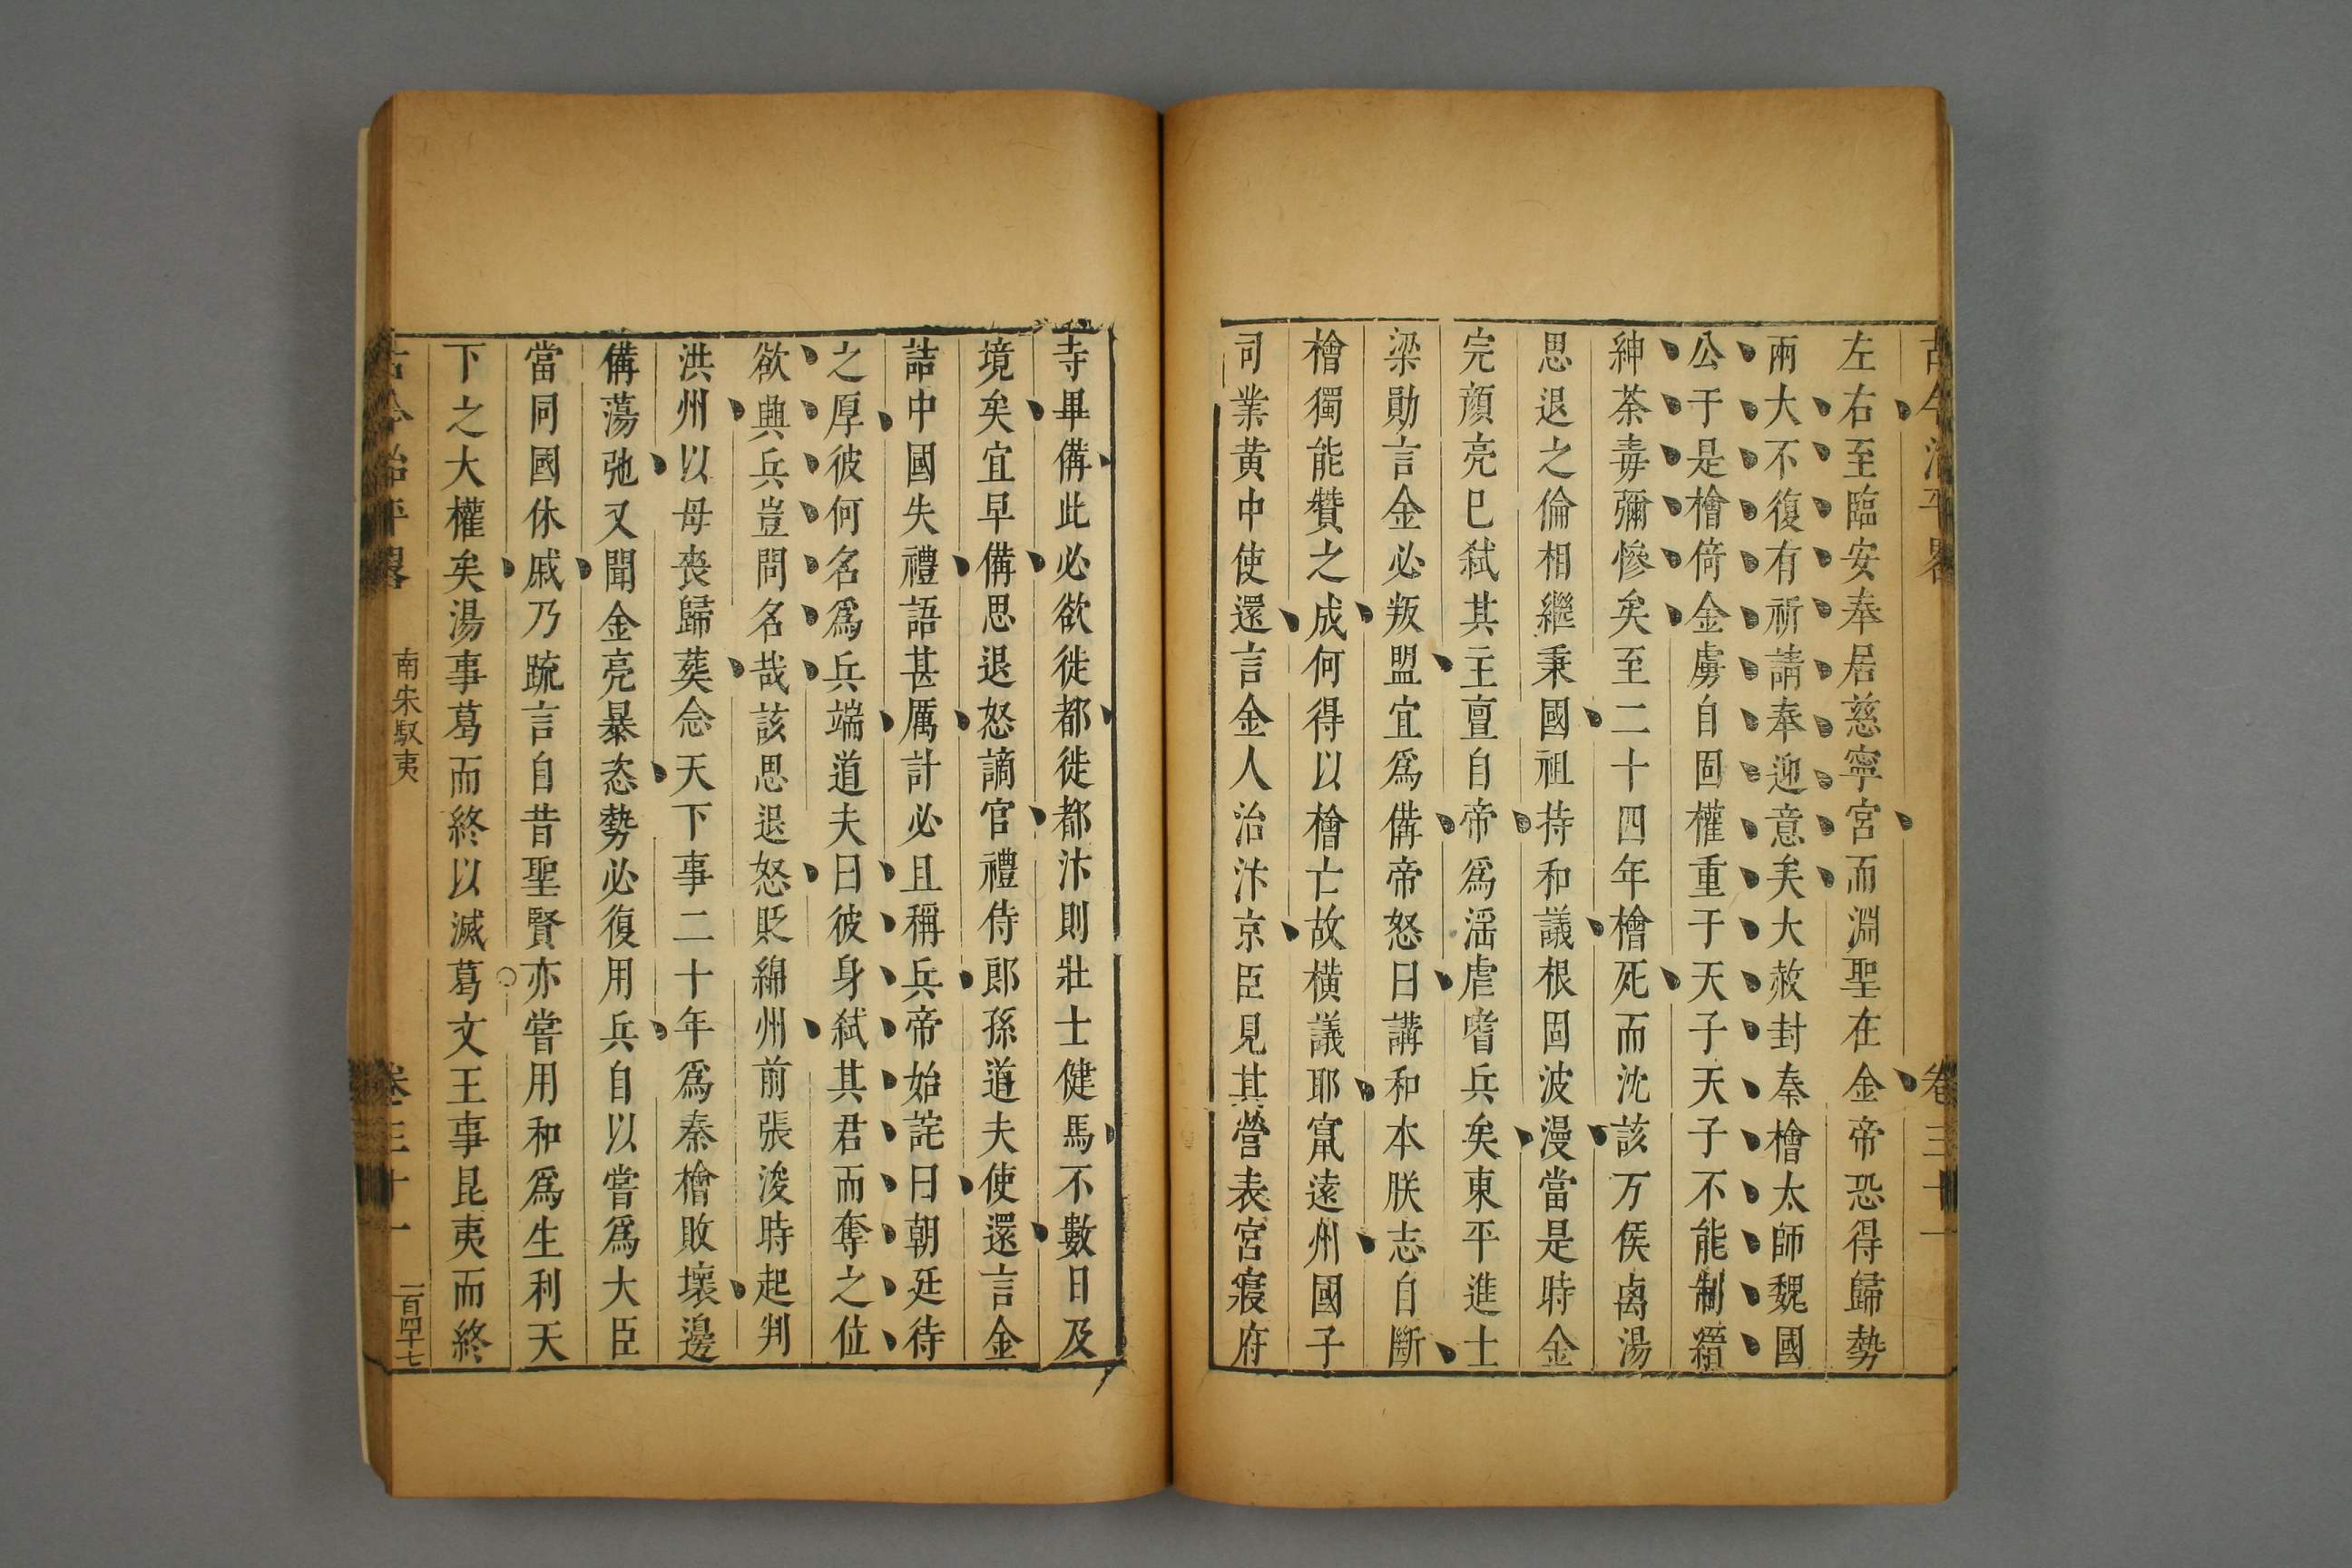 古今治平畧 卷三十一
左右至臨安奉居慈寧宮而淵聖在金帝恐得歸勢
兩大不復有祈請奉迎意矣大赦封秦檜太師魏國
公于是檜倚金虜自固權重于天子天子不能制縉
紳荼毒彌慘矣至二十四年檜死而沈該万俟卨湯
思退之倫相繼秉國祖持和議根固波漫當是時金
完顔亮已弑其主亶自帝爲滛虐嗜兵矣東平進士
梁勛言金必叛盟宜爲備帝怒日講和本朕志自斷
檜獨能贊之成何得以檜亡故橫議耶竄逺州國子
司業黄中使還言金人治汴京臣見其營表宮寢府
寺畢備此必欲徙都徙都汴則壯士健馬不數日及
境矣宜早備思退怒謫官禮侍郎孫道夫使還言金
詰中國失禮語甚厲計必且稱兵帝始詫日朝廷待
之厚彼何名爲兵端道夫日彼身弑其君而奪之位
欲興兵豈問名哉該思退怒貶綿州前張浚時起判
洪州以母喪歸葬念天下事二十年爲秦檜敗壞邊
備蕩弛又聞金亮暴恣勢必復用兵自以嘗爲大臣
當同國休戚乃疏言自昔聖賢亦嘗用和爲生利天
下之大權矣湯事葛而終以滅葛文王事昆夷而終
古今治平畧 南宋馭夷 卷三十一 一百四十七